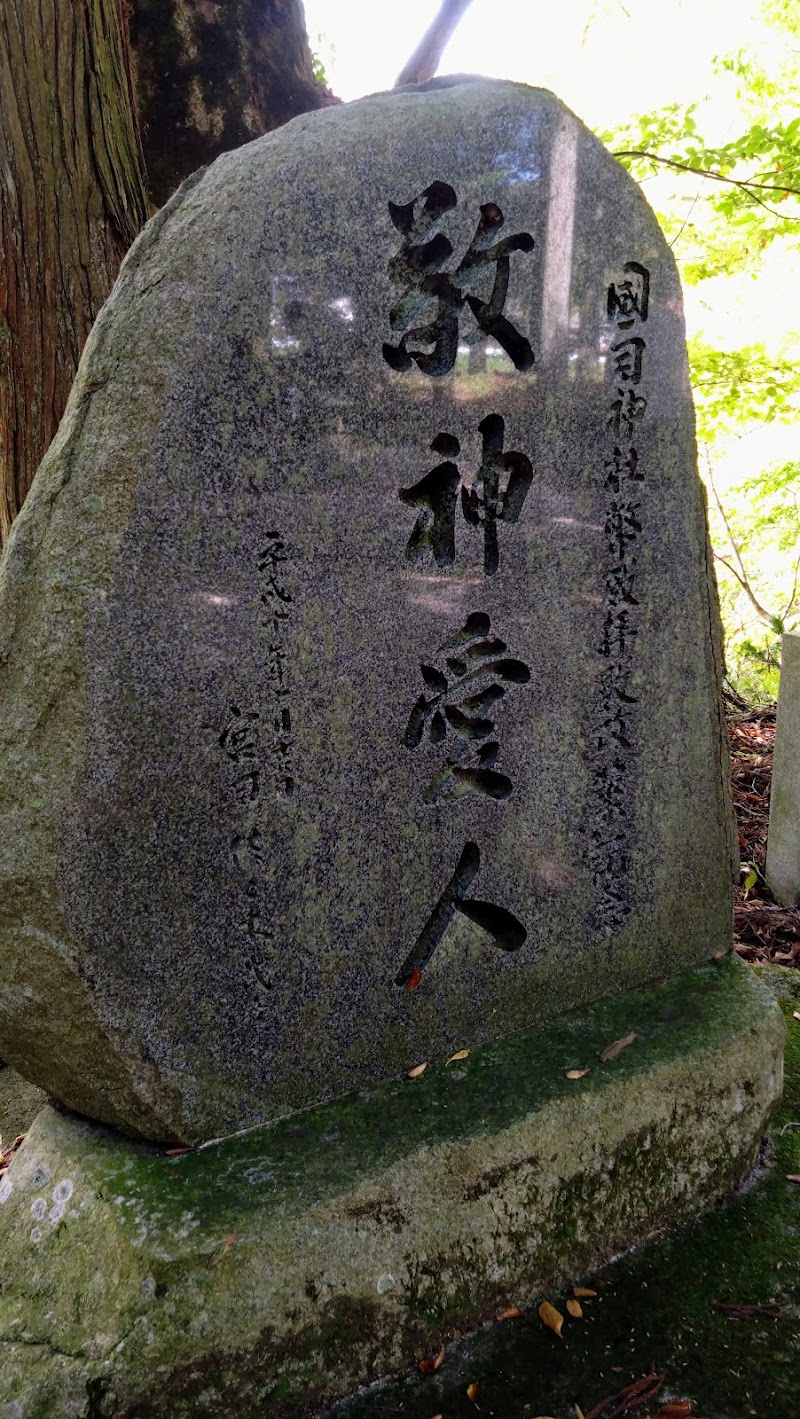 國司神社幣殿拝殿改築記念
敬神愛人
平成十年十一月
宮司